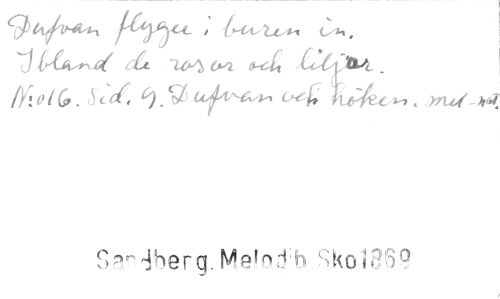 Dufvan flyger i buren in.
Ibland de rosor och liljor.
N:o 16. Sid. 9. Dufvan och höken. mel-not.
Sandberg. Melodib Sko1869